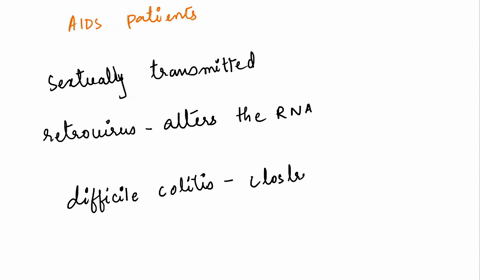 AIDS patients
sextually transmitted
retrovirus - alters the RNA
difficile colitis - closte